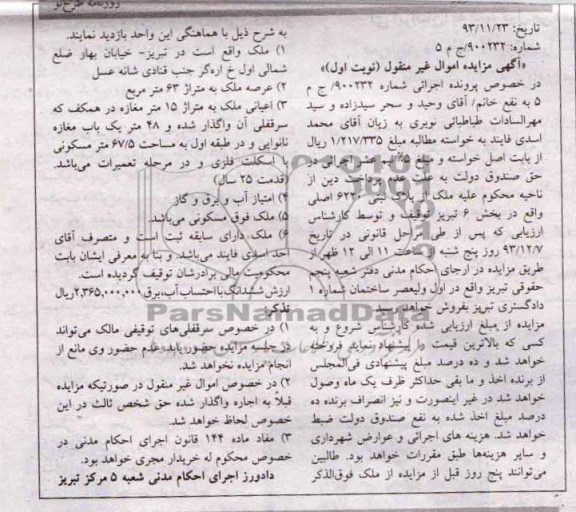 روزنامه طرح نو
تاریخ: ۹۳/۱۱/۲۳
شماره: ۹۰۰۲۳۲/ج م ۵
«آگهی مزایده اموال غیر منقول (نوبت اول)»
در خصوص پرونده اجرائی شماره ۹۰۰۲۳۲/ ج م
۵ به نفع خانم/ آقای وحید و سحر سیدزاده و سید
مهرالسادات طباطبائی نویری به زیان آقای محمد
اسدی فایند به خواسته مطالبه مبلغ ۱/۲۱۷/۳۳۵ ریال
از بابت اصل خواسته و مبلغ ۵٪ نیم عشر اجرای در
حق صندوق دولت به علت عدم پرداخت دین از
ناحیه محکوم علیه ملک از پلاک ثبتی اصلی
واقع در بخش ۶ تبریز توقیف و توسط کارشناس
ارزیابی که پس از طی مراحل قانونی در تاریخ
۹۳/۱۲/۷ روز پنج شنبه از ساعت ۱۱ الی ۱۲ ظهر از
طریق مزایده در اجرای احکام مدنی دفتر شعبه پنجم
حقوقی تبریز واقع در اول ولیعصر ساختمان شماره ۱
دادگستری تبریز بفروش خواهد رسید
مزایده از مبلغ ارزیابی شده کارشناس شروع و به
کسی که بالاترین قیمت را پیشنهاد نماید فروخته
خواهد شد و ده درصد مبلغ پیشنهادی فی‌المجلس
از برنده اخذ و ما بقی حداکثر ظرف یک ماه وصول
خواهد شد در غیر اینصورت و نیز انصراف برنده ده
درصد مبلغ اخذ شده به نفع صندوق دولت ضبط
خواهد شد. هزینه های اجرائی و عوارض شهرداری
و سایر هزینه‌ها طبق مقررات خواهد بود. طالبین
می‌توانند پنج روز قبل از مزایده از ملک فوق‌الذکر
به شرح ذیل با هماهنگی این واحد بازدید نمایند.
۱) ملک واقع است در تبریز- خیابان بهار ضلع
شمالی اول خ اره‌گر جنب قنادی شانه عسل
۲) عرصه ملک به متراژ ۶۳ متر مربع
۳) اعیانی ملک به متراژ ۱۵ متر مغازه در همکف که
سرقفلی آن واگذار شده و ۴۸ متر یک باب مغازه
نانوایی و در طبقه اول به مساحت ۶۷/۵ متر مسکونی
با اسکلت فلزی و در مرحله تعمیرات می‌باشد.
(قدمت ۲۵ سال)
۴) امتیاز آب و برق و گاز
۵) ملک فوق مسکونی می‌باشد.
۶) ملک دارای سابقه ثبت است و متصرف آقای
احد اسدی فایند می‌باشد. و بنا به معرفی ایشان بابت
محکومیت مالی برادرشان توقیف گردیده است.
ارزش ششدانگ با احتساب آب، برق ۲,۳۶۵,۰۰۰,۰۰۰ ریال
تذکر:
۱) در خصوص سرقفلی‌های توقیفی مالک می‌تواند
در جلسه مزایده حضور یابد. عدم حضور وی مانع از
انجام مزایده نخواهد شد.
۲) در خصوص اموال غیر منقول در صورتیکه مزایده
قبلاً به اجاره واگذار شده حق شخص ثالث در این
خصوص لحاظ خواهد شد.
۳) مفاد ماده ۱۴۴ قانون اجرای احکام مدنی در
خصوص محکوم له خریدار مجری خواهد بود.
دادورز اجرای احکام مدنی شعبه ۵ مرکز تبریز
ParsNamadData